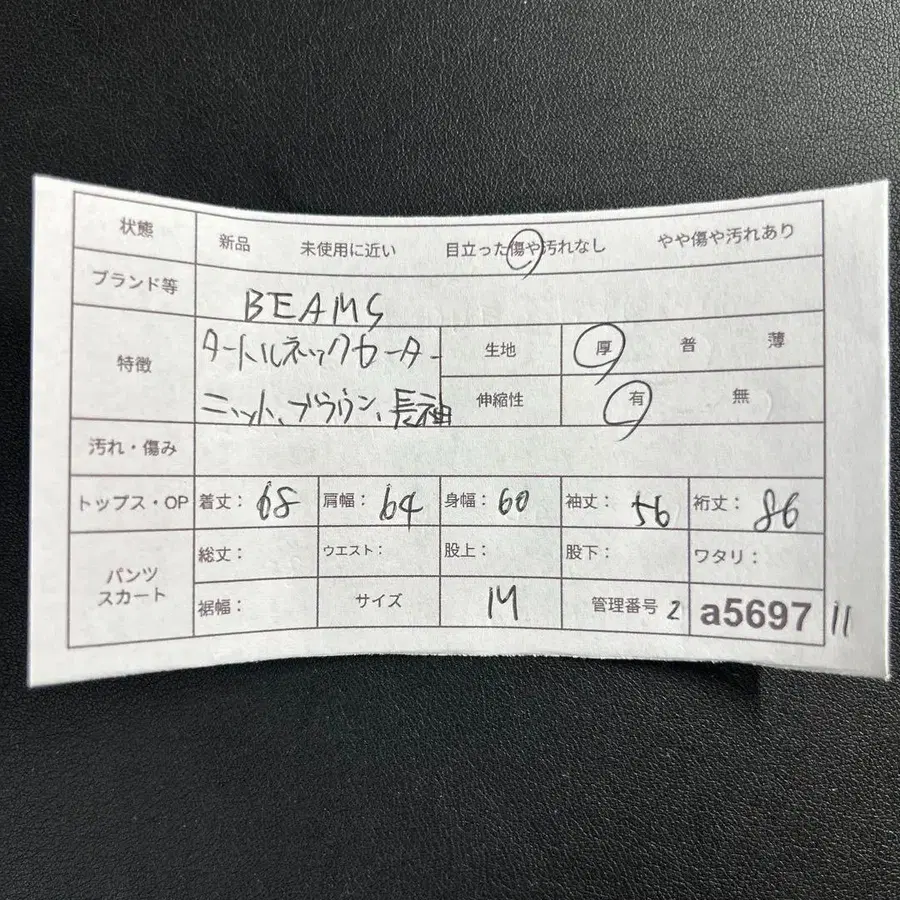 状態 新品 未使用に近い 目立った傷や汚れなし やや傷や汚れあり
ブランド等 BEAMS
特徴 タートルネックセーター 生地 厚 普 薄
ニット、ブラウン、長袖 伸縮性 有 無
汚れ・傷み
トップス・OP 着丈: 68 肩幅: 64 身幅: 60 袖丈: 56 裄丈: 86
パンツ スカート 総丈: ウエスト: 股上: 股下: ワタリ:
裾幅: サイズ M 管理番号 2 a5697 11